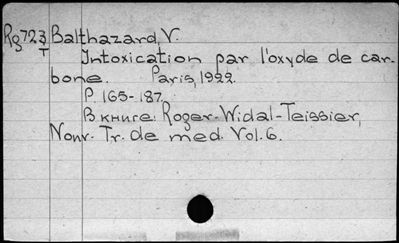 Rg723 Balthazard V.
T
Intoxication par l'oxyde de car-
bone. Paris, 1922.
P. 165-187.
В книге: Roger-Widal-Teissier,
Nouv. Tr. de med. Vol. 6.